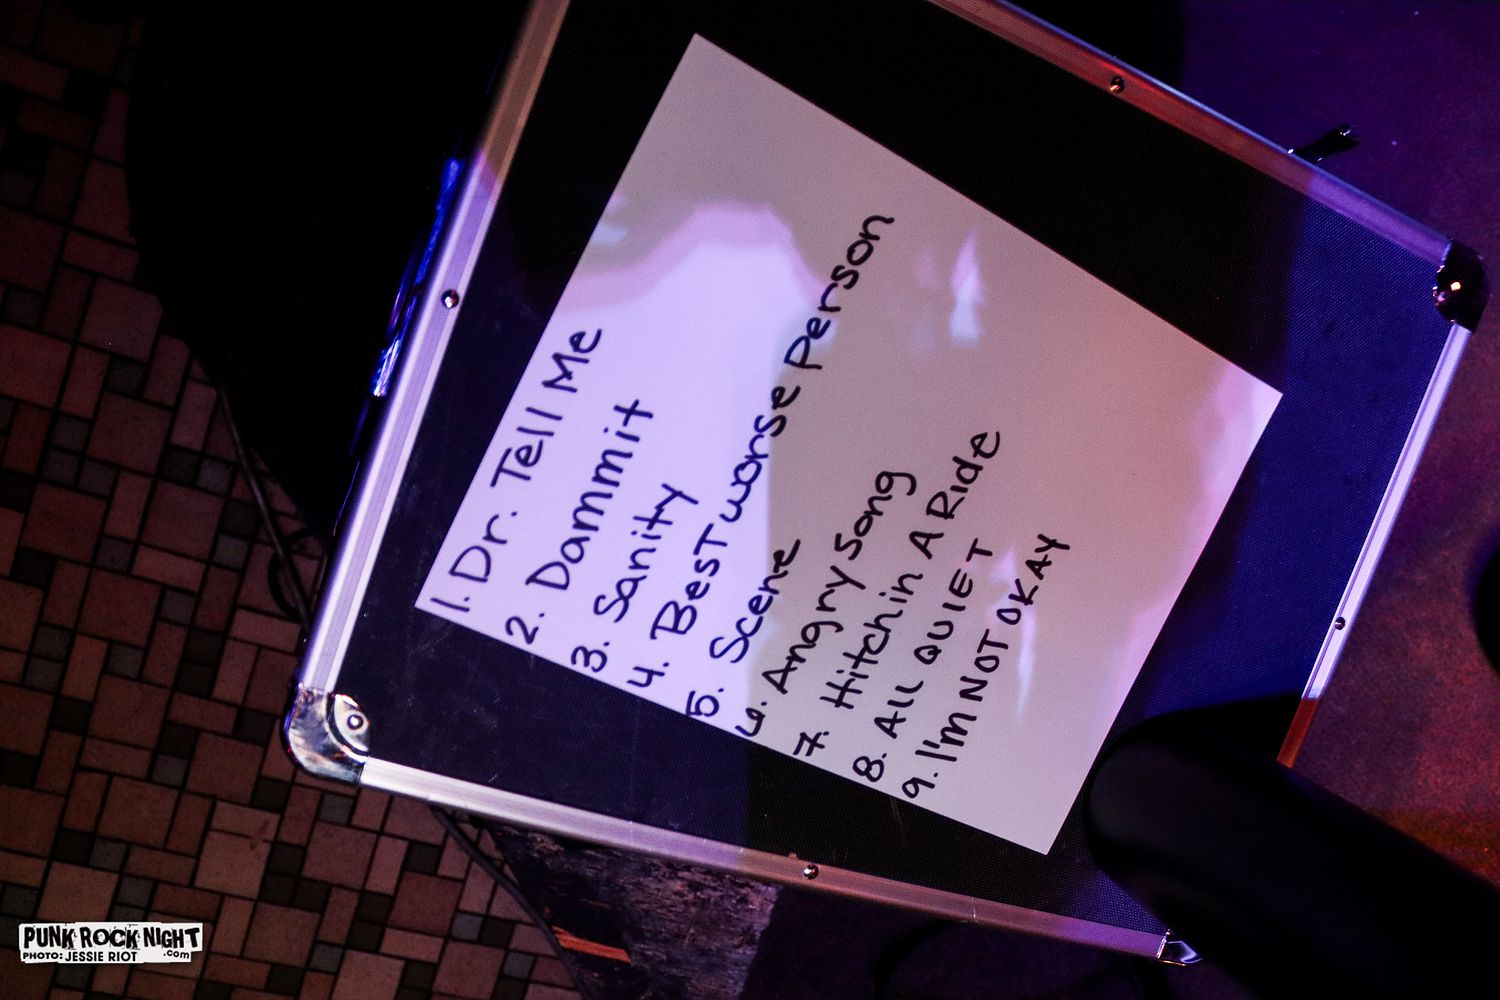 1. Dr. Tell Me
2. Dammit
3. Sanity
4. Best worse person
5. Scene
6. Angry Song
7. Hitchin A Ride
8. ALL QUIET
9. I'm NOT OKAY
PUNK ROCK NIGHT
PHOTO: JESSIE RIOT .com